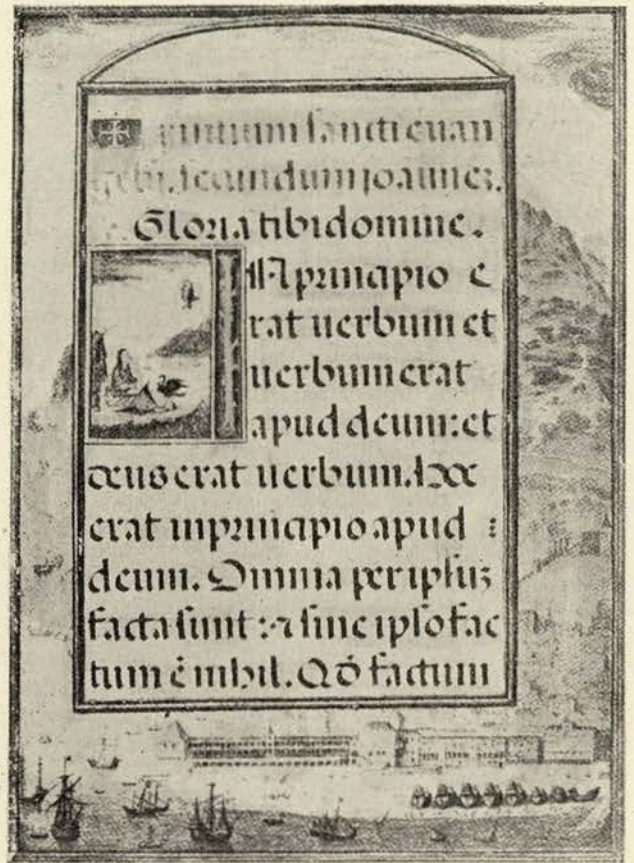 ✠ Initium sancti euan
gelii. secundum ioannez.
Gloria tibi domine.
IN principio e
rat uerbum et
uerbum erat
apud deum: et
deus erat uerbum. hoc
erat in principio apud :
deum. Omnia per ipsuz
facta sunt : ⁊ sine ipso fac
tum ē nihil. Qō factum